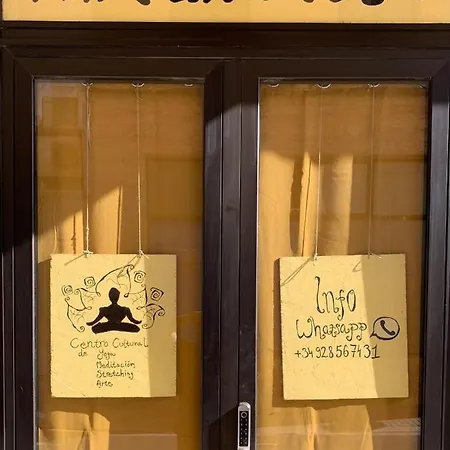 Centro Cultural
de Yoga
Meditación
Stretching
Arte
Info
Whatsapp
+34928567431